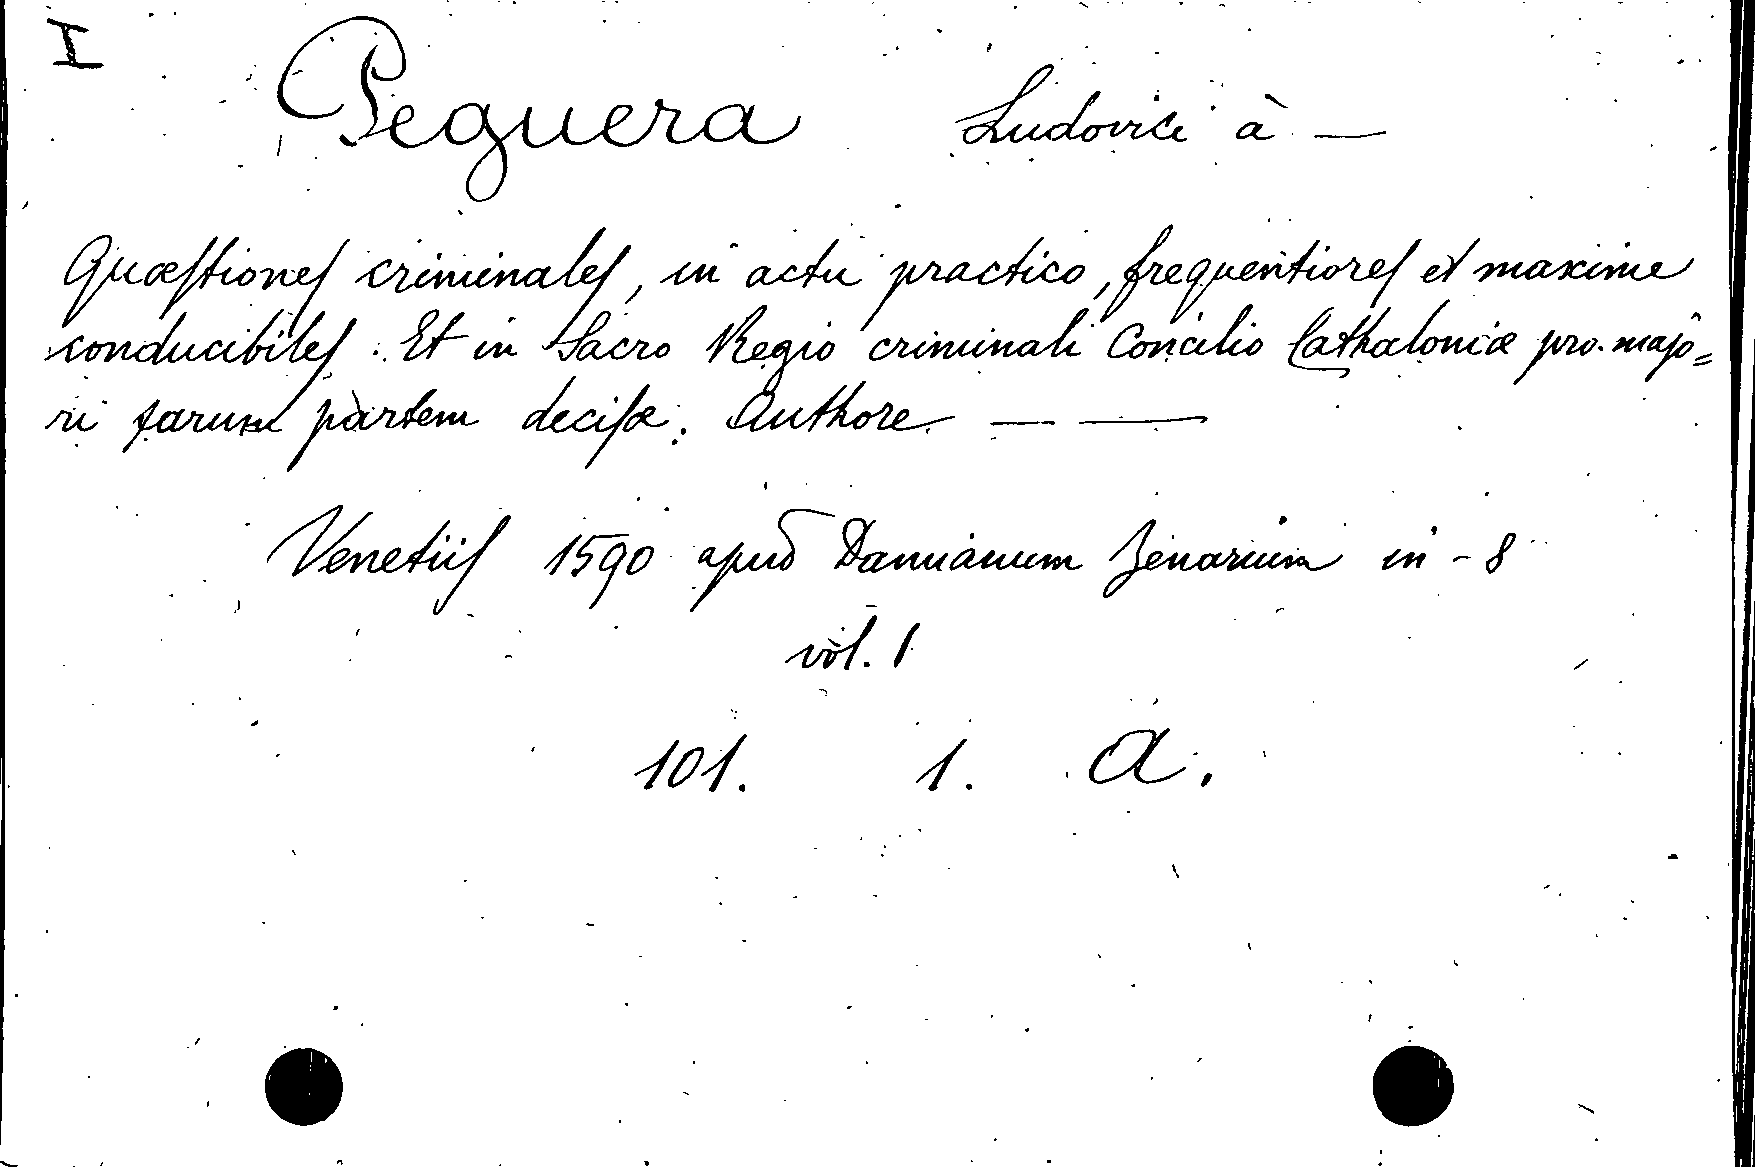 I
Peguera Ludovici à —
Quæſtioneſ criminaleſ, in actu practico, frequentioreſ et maxime
conducibileſ. Et in Sacro Regio criminali Concilio Cathaloniæ pro majo=
ri earum partem deciſæ. Authore — —
Venetiiſ 1590 apud Damianum Zenarium in-8
vol. 1
101. 1. A.